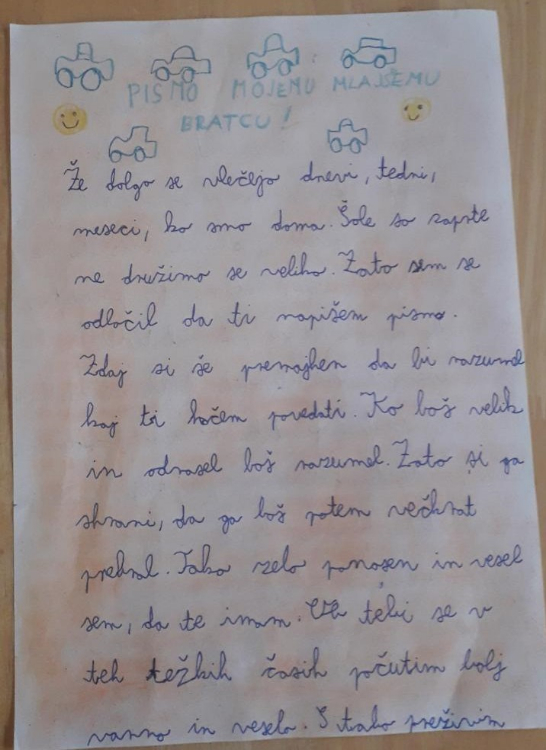 PISMO MOJEMU MLAJŠEMU
BRATCU!
Že dolgo se vlečejo dnevi, tedni,
meseci, ko smo doma. Šole so zaprte
ne družimo se veliko. Zato sem se
odločil da ti napišem pismo.
Zdaj si še premajhen da bi razumel
kaj ti hočem povedati. Ko boš velik
in odrasel boš razumel. Zato si ga
shrani, da ga boš potem večkrat
prebral. Tako zelo ponosen in vesel
sem, da te imam. Ob tebi se v
teh težkih časih počutim bolj
varno in veselo. S tabo preživim